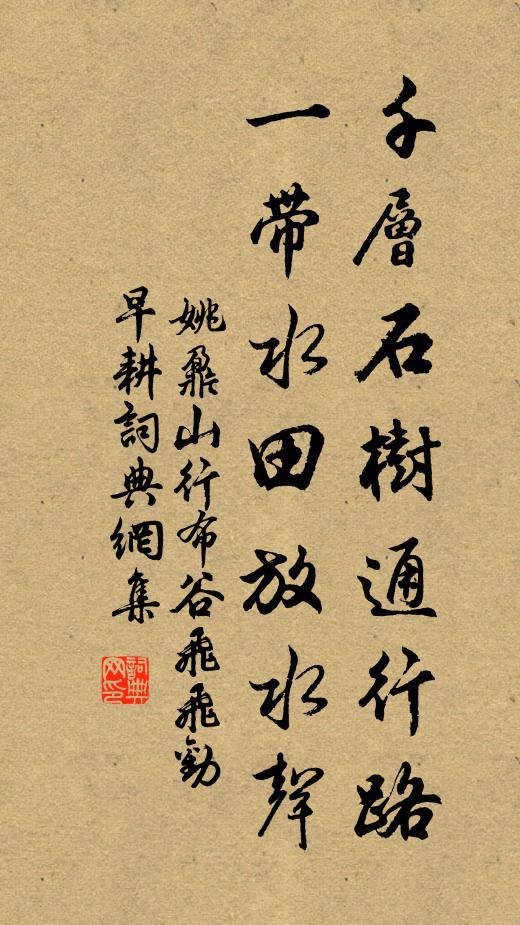 千層石樹通行路
一帶水田放水聲
姚鼐山行布谷飛飛勸
早耕詞典網集
詞典网印